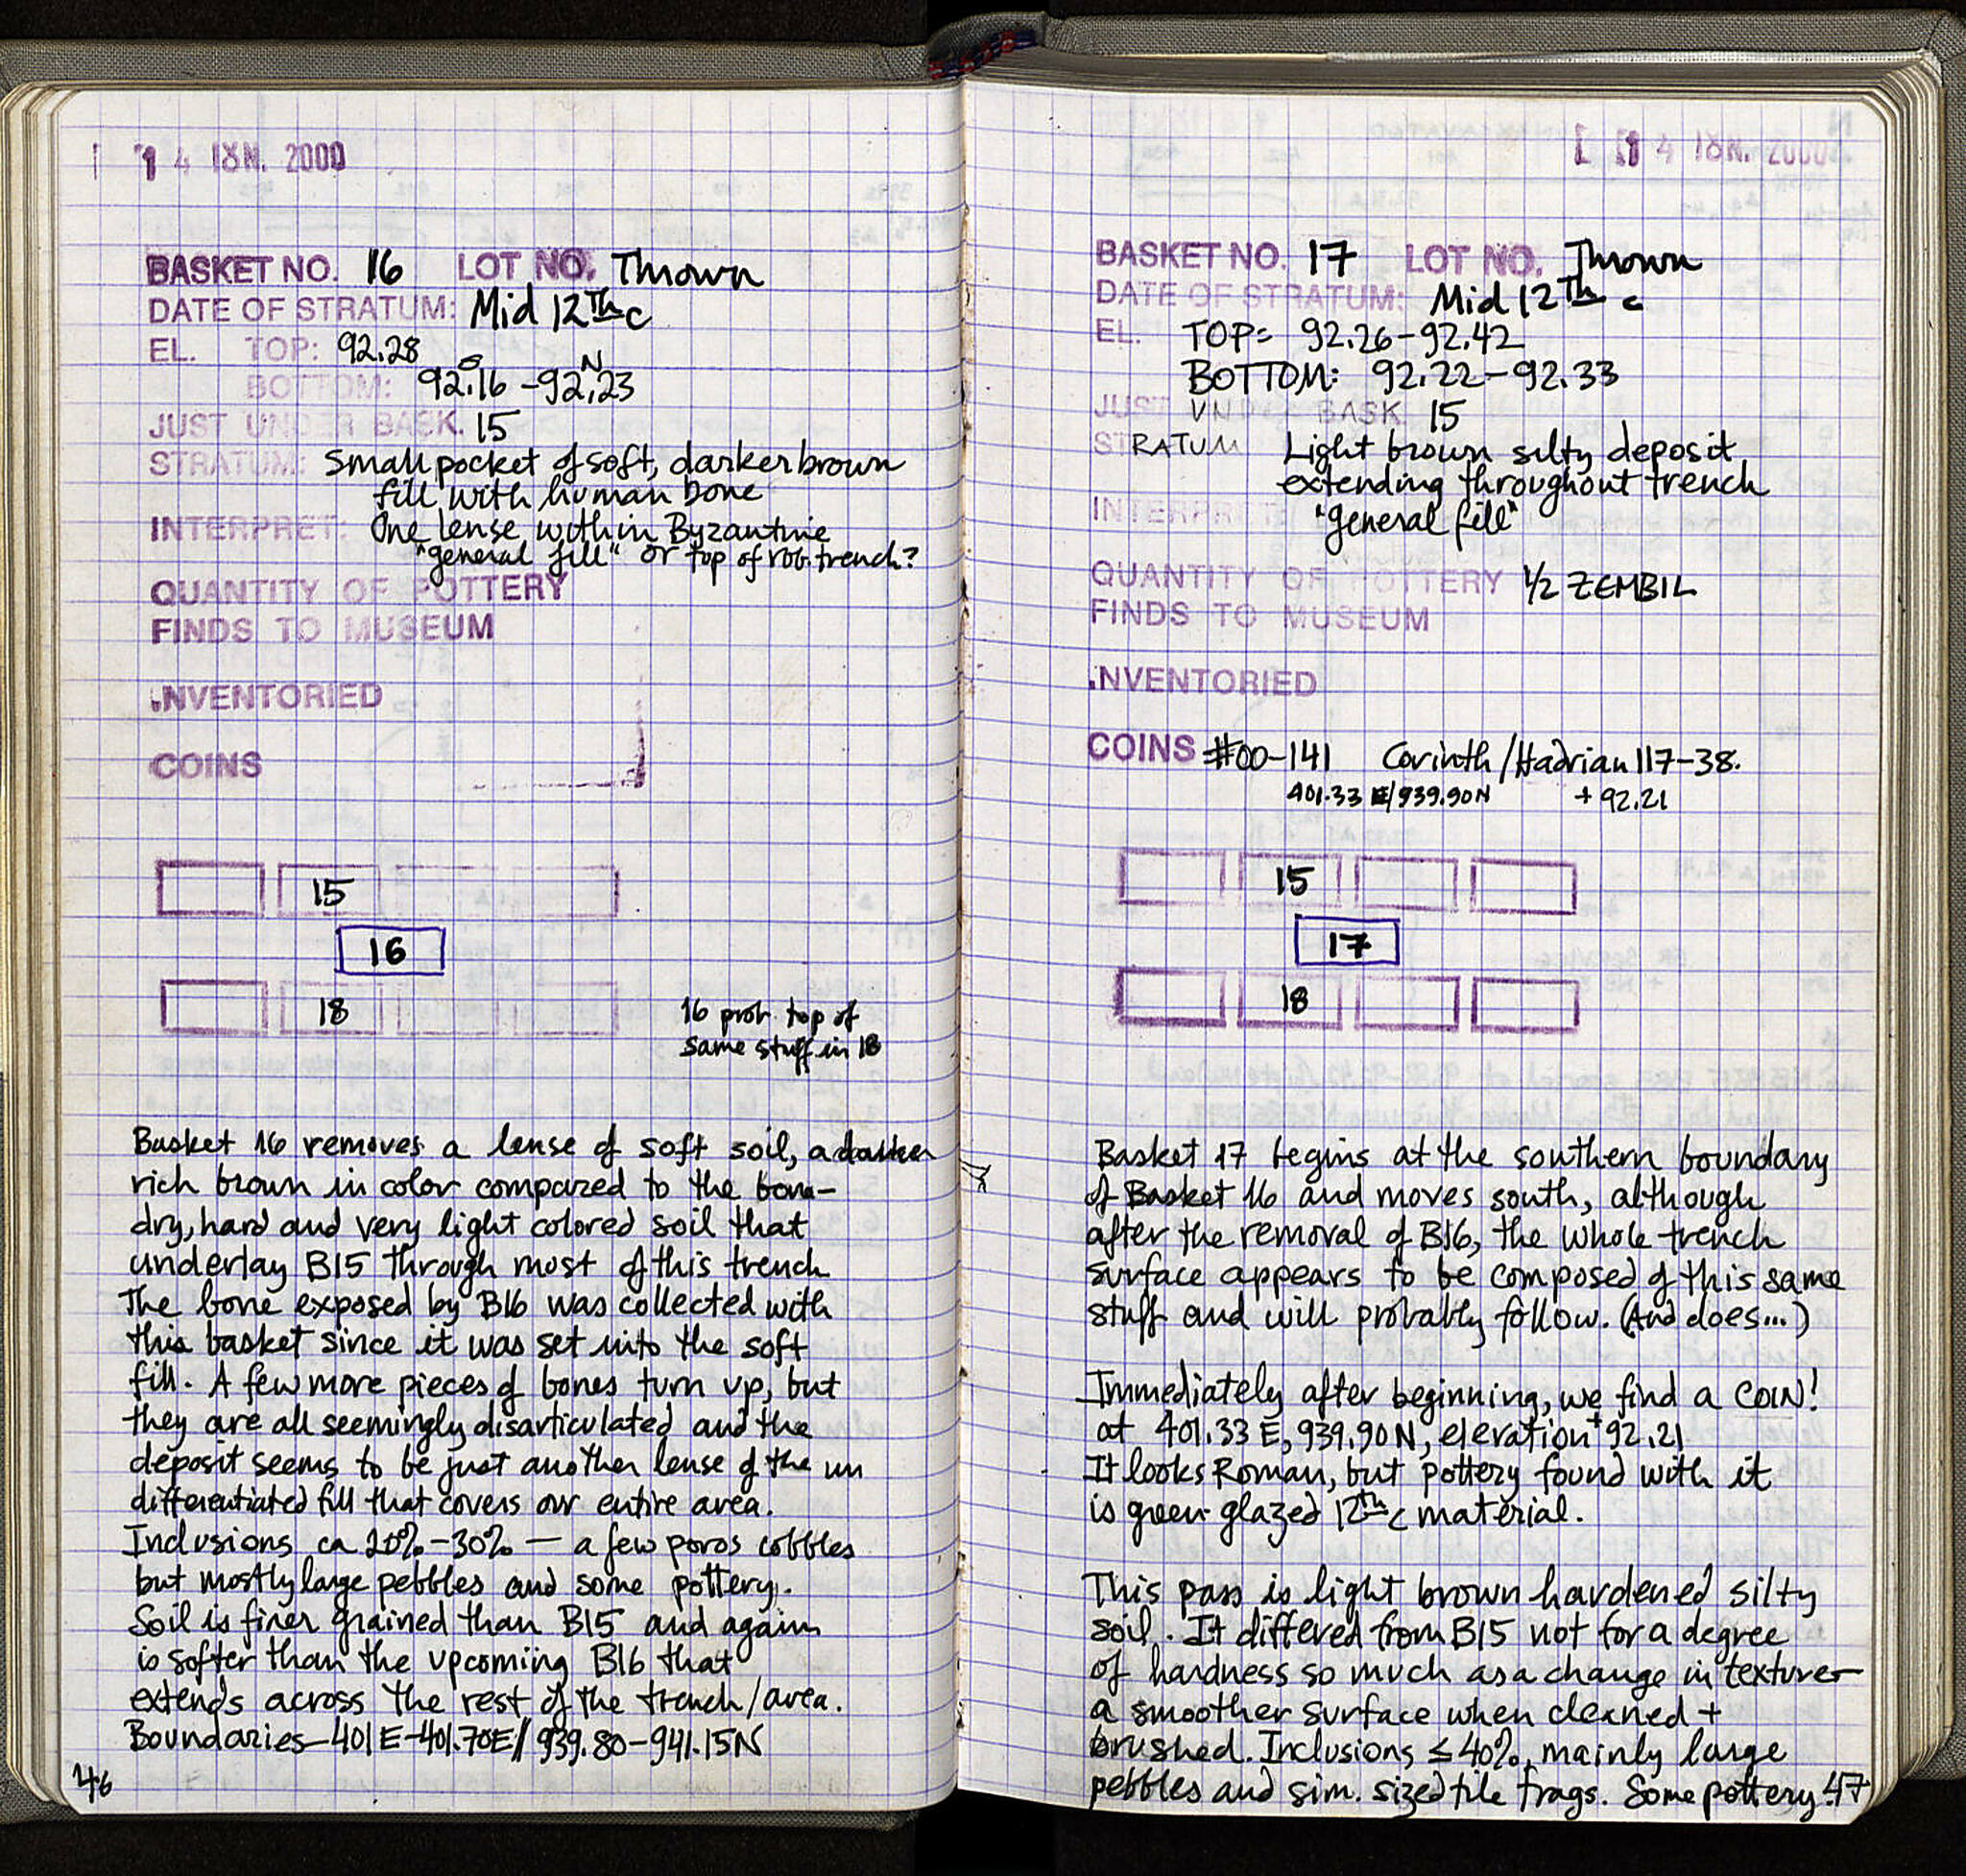 14 ΙΟΥΝ. 2000
BASKET NO. 16 LOT NO. Thrown
DATE OF STRATUM: Mid 12Th c
EL. TOP: 92.28
S N
BOTTOM: 92.16 - 92.23
JUST UNDER BASK. 15
STRATUM: small pocket of soft, darker brown
fill with human bone
INTERPRET: One lense within Byzantine
"general fill" or top of rob. trench?
QUANTITY OF POTTERY
FINDS TO MUSEUM
INVENTORIED
COINS
15
16
18
16 prob. top of
same stuff in 18
Basket 16 removes a lense of soft soil, a darker
rich brown in color compared to the bone-
dry, hard and very light colored soil that
underlay B15 through most of this trench
The bone exposed by B16 was collected with
this basket since it was set into the soft
fill. A few more pieces of bones turn up, but
they are all seemingly disarticulated and the
deposit seems to be just another lense of the un
differentiated fill that covers our entire area.
Inclusions ca 20%-30% — a few poros cobbles
but mostly large pebbles and some pottery.
Soil is finer grained than B15 and again
is softer than the upcoming B16 that
extends across the rest of the trench/area.
Boundaries-401E-401.70E// 939.80-941.15N
46
14 ΙΟΥΝ. 2000
BASKET NO. 17 LOT NO. Thrown
DATE OF STRATUM: Mid 12Th c
EL. TOP= 92.26-92.42
BOTTOM: 92.22-92.33
JUST UNDER BASK 15
STRATUM Light brown silty deposit
extending throughout trench
INTERPRET "general fill"
QUANTITY OF POTTERY 1/2 ZEMBIL
FINDS TO MUSEUM
INVENTORIED
COINS #00-141 Corinth/Hadrian 117-38.
401.33 E/939.90N + 92.21
15
17
18
Basket 17 begins at the southern boundary
of Basket 16 and moves south, although
after the removal of B16, the whole trench
surface appears to be composed of this same
stuff and will probably follow. (And does...)
Immediately after beginning, we find a COIN!
at 401.33 E, 939.90N, elevation +92.21
It looks Roman, but pottery found with it
is green glazed 12th c material.
This pass is light brown hardened silty
soil. It differed from B15 not for a degree
of hardness so much as a change in texture-
a smoother surface when cleaned +
brushed. Inclusions ≤40%, mainly large
pebbles and sim. sized tile frags. Some pottery.
47